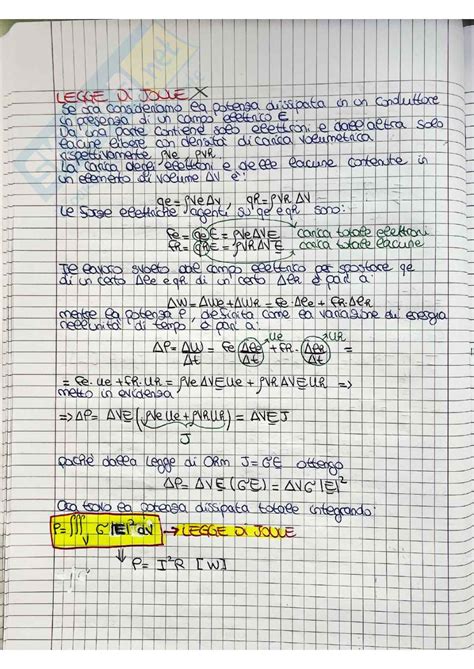 LEGGE DI JOULE X
Se ora consideriamo la potenza dissipata in un conduttore
in presenza di un campo elettrico E
Da una parte contiene solo elettroni e dall'altra solo
lacune libere con densità di carica volumetrica
rispettivamente ρVe ρVR
La carica degli elettroni e delle lacune contenute in
un elemento di volume ΔV è:
qe = ρVe ΔV , qR = ρVR ΔV
Le forze elettriche agenti su qe e qR sono:
Fe = qe E = ρVe ΔV E carica totale elettroni
FR = qR E = ρVR ΔV E carica totale lacune
Il lavoro svolto dal campo elettrico per spostare qe
di un certo Δle e qR di un certo ΔlR è pari a:
ΔW = ΔWe + ΔWR = Fe · Δle + FR · ΔlR
mentre la potenza P, definita come la variazione di energia
nell'unità di tempo è pari a:
ΔP = ΔW/Δt = Fe Δle/Δt + FR · ΔlR/Δt = ue uR
= Fe · ue + FR · uR = ρVe ΔV E ue + ρVR ΔV E uR =>
metto in evidenza
=> ΔP = ΔV E (ρVe ue + ρVR uR) = ΔV E J
J
poiché dalla legge di Ohm J = σE ottengo
ΔP = ΔV E (σE) = ΔV σ |E|²
Ora trovo la potenza dissipata totale integrando:
P = ∭V σ |E|² dV → LEGGE DI JOULE
↓ P = I²R [W]